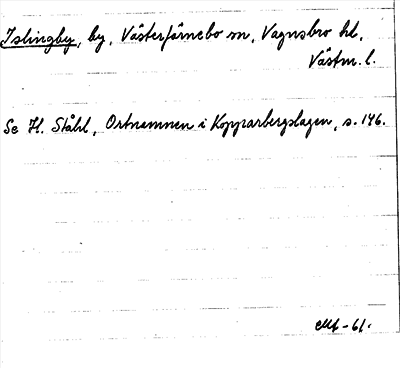 Islingby, by, Västerfärnebo sn, Vagnsbro hd,
Västm. l.
Se H. Ståhl, Ortnamnen i Kopparbergslagen, s. 146.
-61.